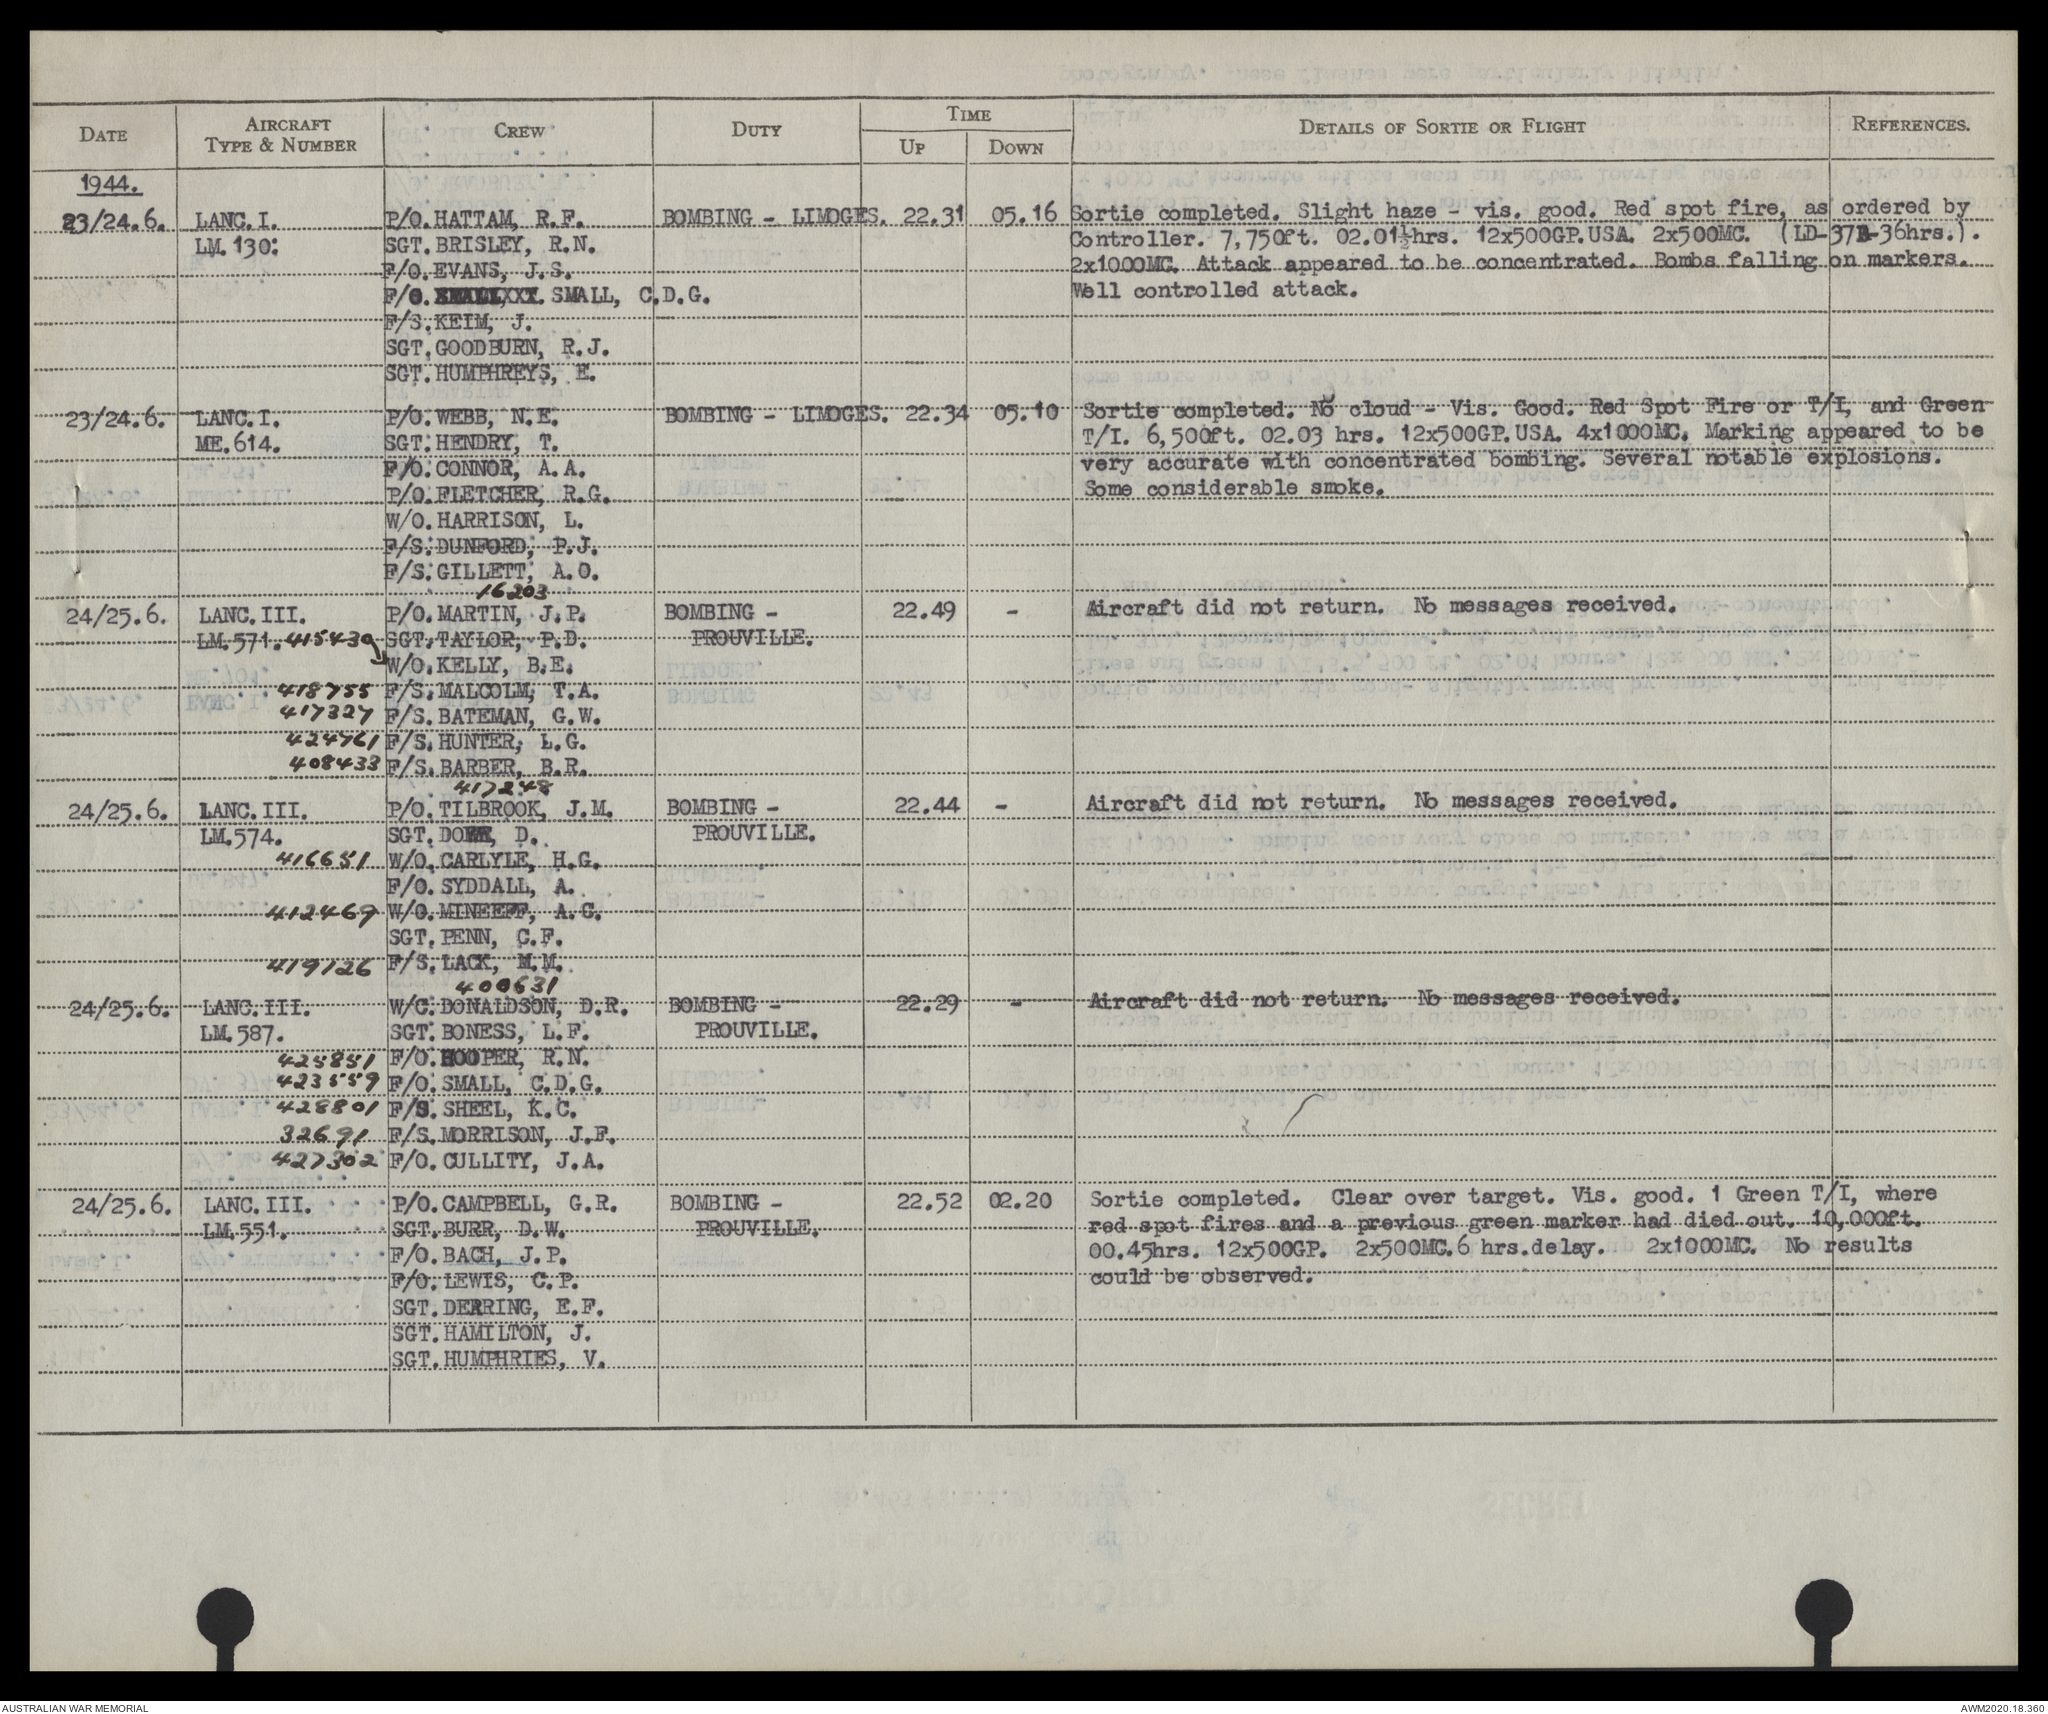 DATE | AIRCRAFT TYPE & NUMBER | CREW | DUTY | TIME UP | TIME DOWN | DETAILS OF SORTIE OR FLIGHT | REFERENCES.
1944.
23/24.6. LANC.I. P/O.HATTAM, R.F. BOMBING - LIMOGES. 22.31 05.16 Sortie completed. Slight haze - vis. good. Red spot fire, as ordered by
LM.130. SGT.BRISLEY, R.N. Controller. 7,750ft. 02.01½hrs. 12x500GP.USA. 2x500MC. (LD-37B-36hrs.).
F/O.EVANS, J.S. 2x1000MC. Attack appeared to be concentrated. Bombs falling on markers.
F/O. SMALL, C.D.G. Well controlled attack.
F/S.KEIM, J.
SGT.GOODBURN, R.J.
SGT.HUMPHREYS, E.
23/24.6. LANC.I. P/O.WEBB, N.E. BOMBING - LIMOGES. 22.34 05.10 Sortie completed. No cloud - Vis. Good. Red Spot Fire or T/I, and Green
ME.614. SGT.HENDRY, T. T/I. 6,500ft. 02.03 hrs. 12x500GP.USA. 4x1000MC. Marking appeared to be
F/O.CONNOR, A.A. very accurate with concentrated bombing. Several notable explosions.
P/O.FLETCHER, R.G. Some considerable smoke.
W/O.HARRISON, L.
F/S.DUNFORD, P.J.
F/S.GILLETT, A.O.
16203
24/25.6. LANC.III. P/O.MARTIN, J.P. BOMBING - 22.49 - Aircraft did not return. No messages received.
LM.571. 415439 SGT.TAYLOR, P.D. PROUVILLE.
W/O.KELLY, B.E.
418755 F/S.MALCOLM, T.A.
417327 F/S.BATEMAN, G.W.
424761 F/S.HUNTER, L.G.
408433 F/S.BARBER, B.R.
417248
24/25.6. LANC.III. P/O.TILBROOK, J.M. BOMBING - 22.44 - Aircraft did not return. No messages received.
LM.574. SGT. D. PROUVILLE.
416651 W/O.CARLYLE, H.G.
F/O.SYDDALL, A.
412469 W/O.MINEEFF, A.G.
SGT.PENN, C.F.
419126 F/S.LACK, M.M.
400631
24/25.6. LANC.III. W/C.DONALDSON, D.R. BOMBING - 22.29 - Aircraft did not return. No messages received.
LM.587. SGT.BONESS, L.F. PROUVILLE.
425851 F/O.HOOPER, R.N.
423559 F/O.SMALL, C.D.G.
428801 F/S.SHEEL, K.C.
32691 F/S.MORRISON, J.F.
427302 F/O.CULLITY, J.A.
24/25.6. LANC.III. P/O.CAMPBELL, G.R. BOMBING - 22.52 02.20 Sortie completed. Clear over target. Vis. good. 1 Green T/I, where
LM.551. SGT.BURR, D.W. PROUVILLE. red spot fires and a previous green marker had died out. 10,000ft.
F/O.BACH, J.P. 00.45hrs. 12x500GP. 2x500MC.6 hrs.delay. 2x1000MC. No results
F/O.LEWIS, C.P. could be observed.
SGT.DERRING, E.F.
SGT.HAMILTON, J.
SGT.HUMPHRIES, V.
AUSTRALIAN WAR MEMORIAL AWM2020.18.360